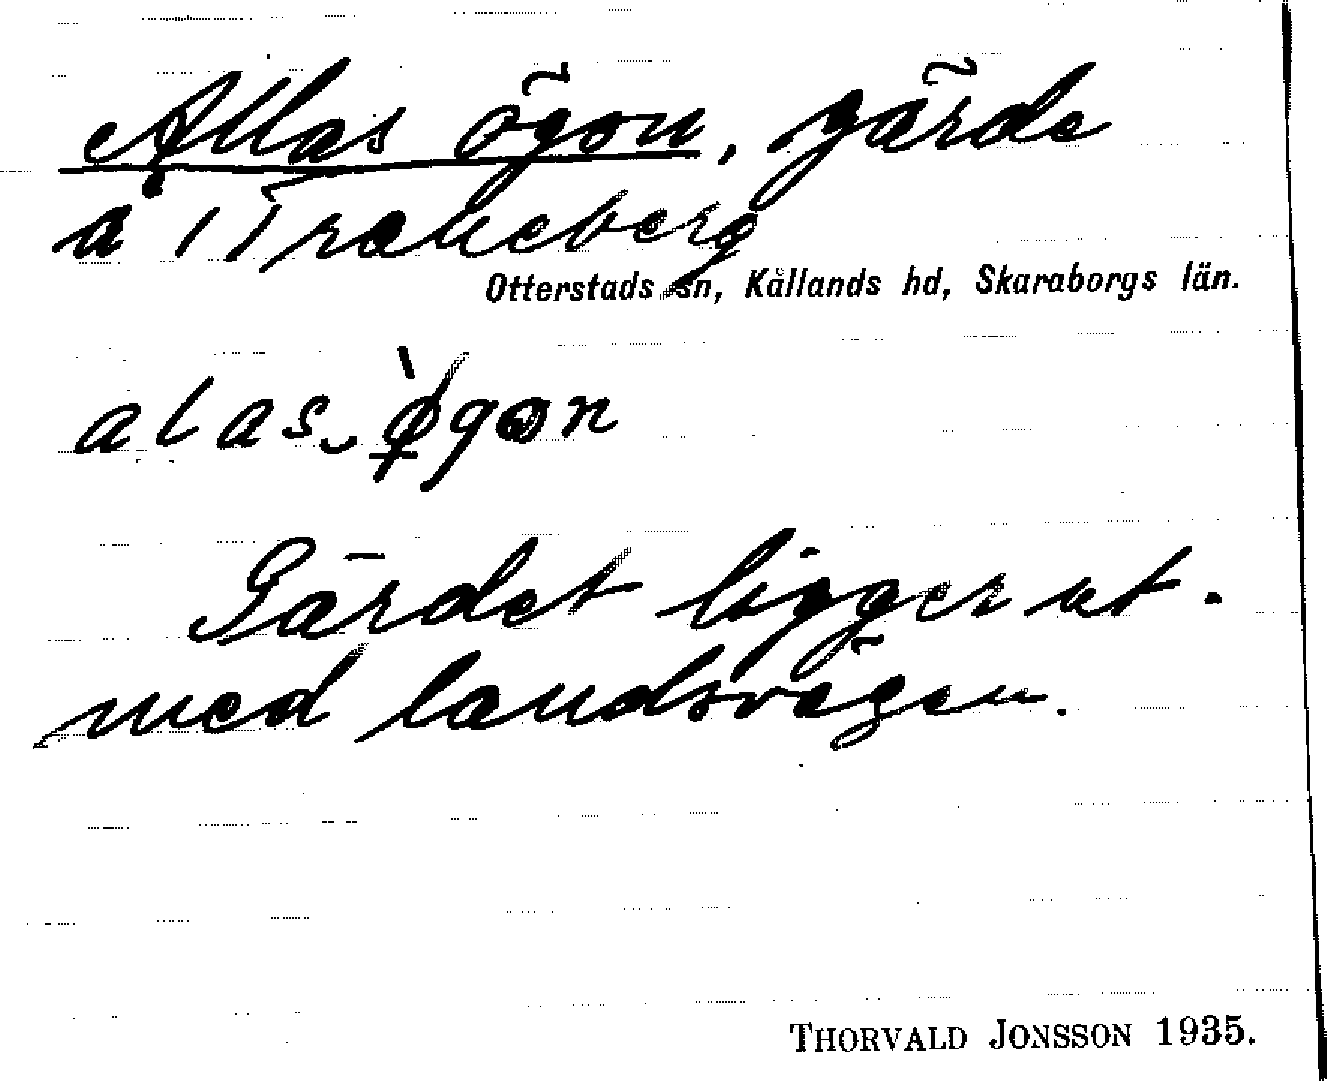 Allas ögon, gärde
å 1 Traneberg
Otterstads sn, Kållands hd, Skaraborgs län.
alas ø̀gon
Gärdet ligger ut-
med landsvägen.
THORVALD JONSSON 1935.